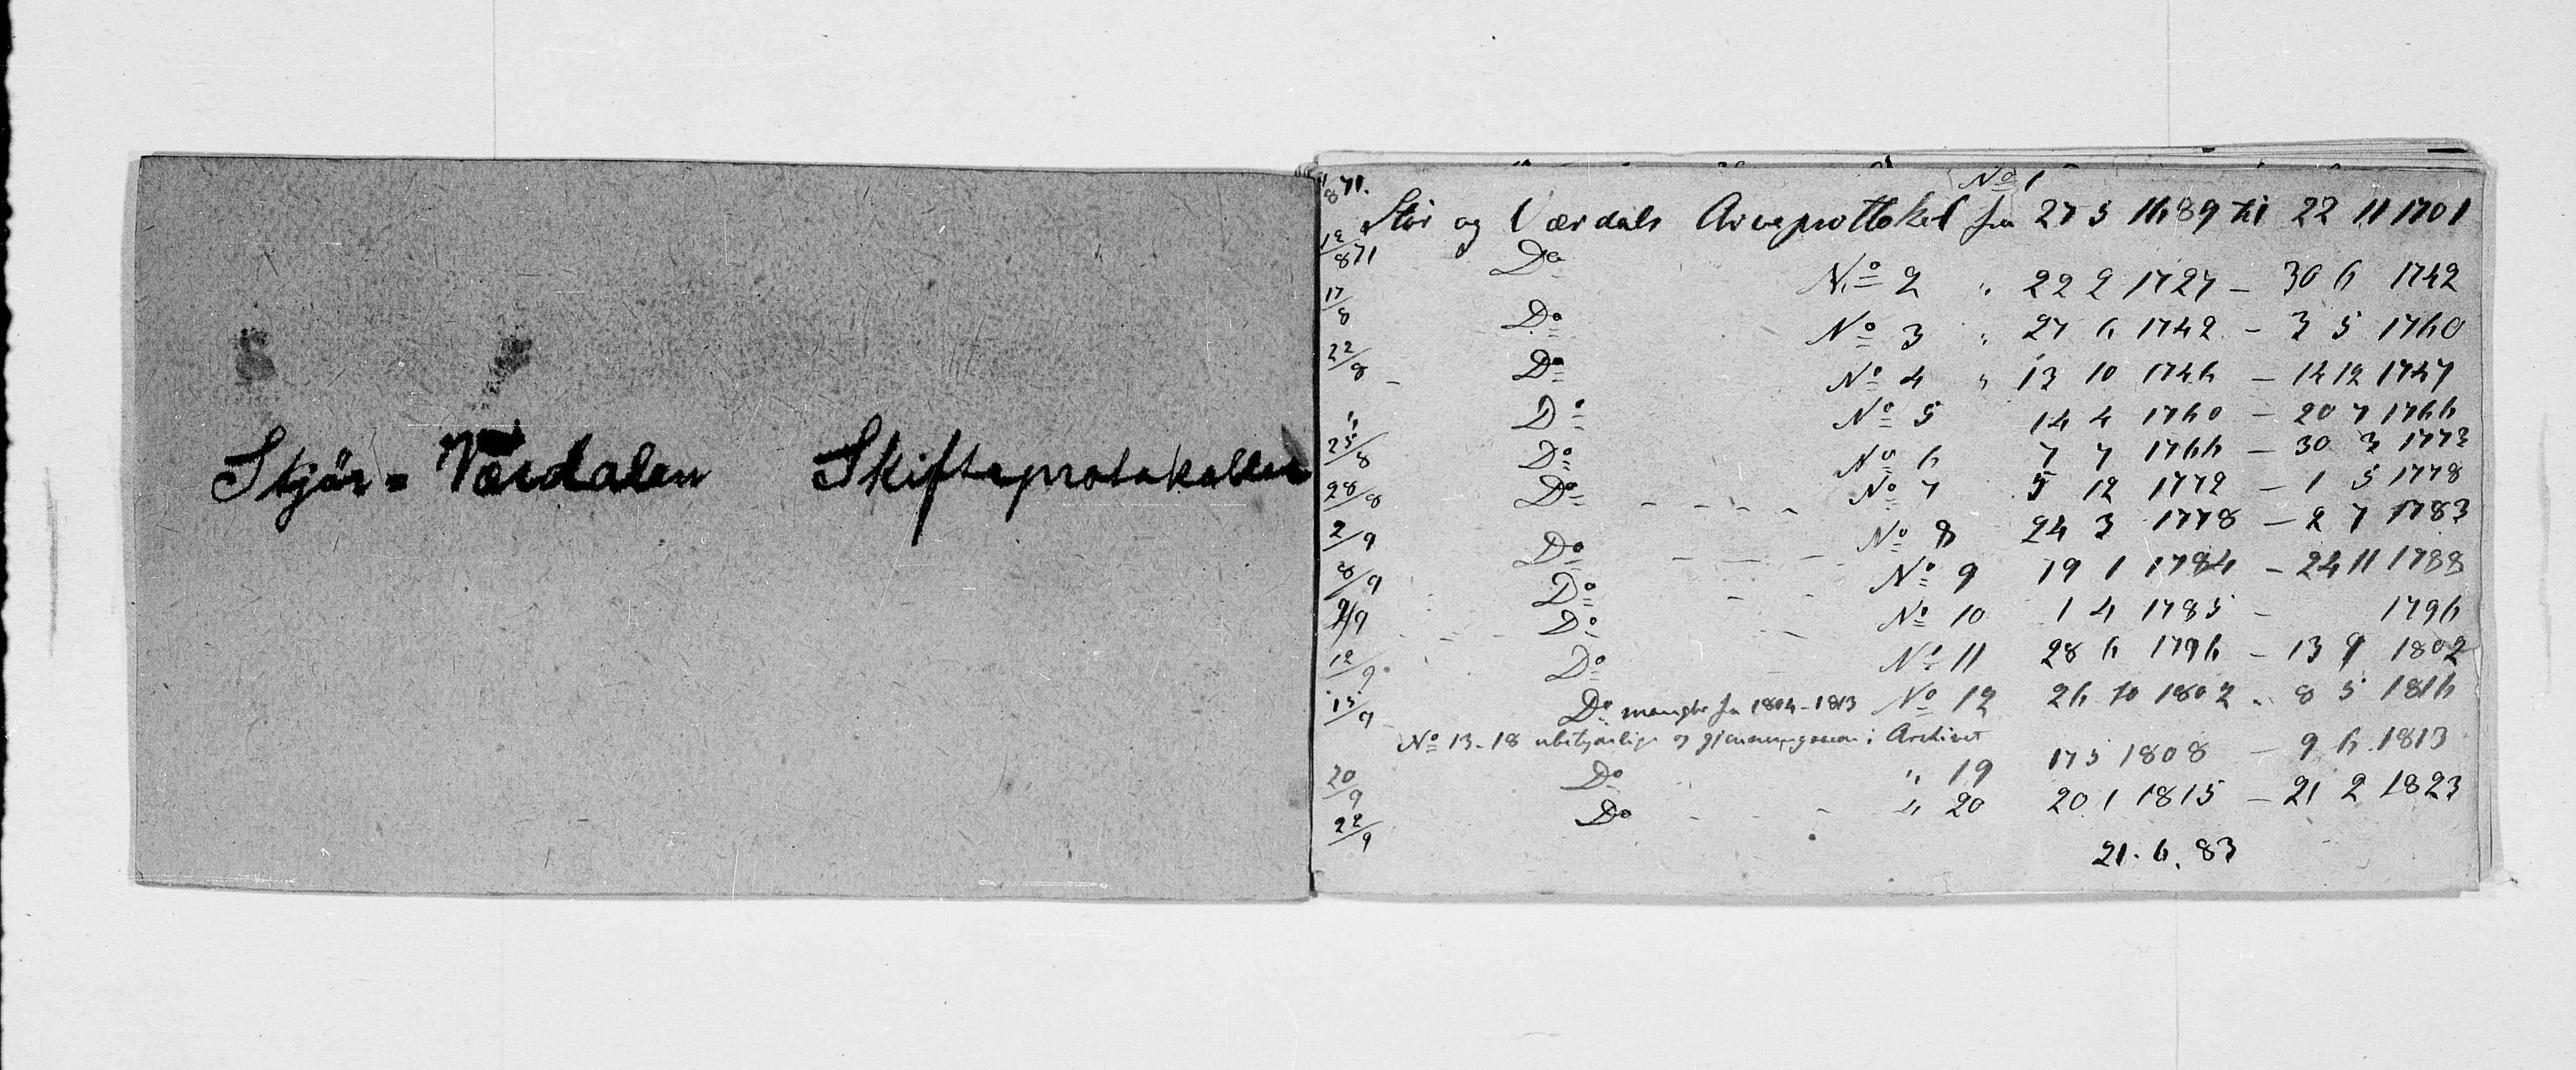 Stjör = Værdalen Skifteprotokoller
871.
No 1
Stör og Værdals Arveprottokol fra 27 5 1689 til 22 11 1701
12/871 Do No 2 " 22 2 1727 – 30 6 1742
17/8 Do No 3 " 27 6 1742 – 3 5 1760
22/8 – Do No 4 " 13 10 1746 – 14 12 1747
" Do No 5 14 4 1760 – 20 7 1766
25/8 Do No 6 7 7 1766 – 30 3 1773
28/8 Do No 7 5 12 1772 – 1 5 1778
2/9 Do No 8 24 3 1778 – 2 7 1783
8/9 Do No 9 19 1 1784 – 24 11 1788
9/9 Do No 10 1 4 1785 – 1796
12/9 Do No 11 28 6 1796 – 13 9 1802
15/9 Do mangler fra 1804–1813 No 12 26 10 1802 – 8 5 1816
No 13–18 ubetydelige og i Archivet
20/9 Do " 19 17 5 1808 – 9 6 1813
22/9 Do " 20 20 1 1815 – 21 2 1823
21. 6. 83